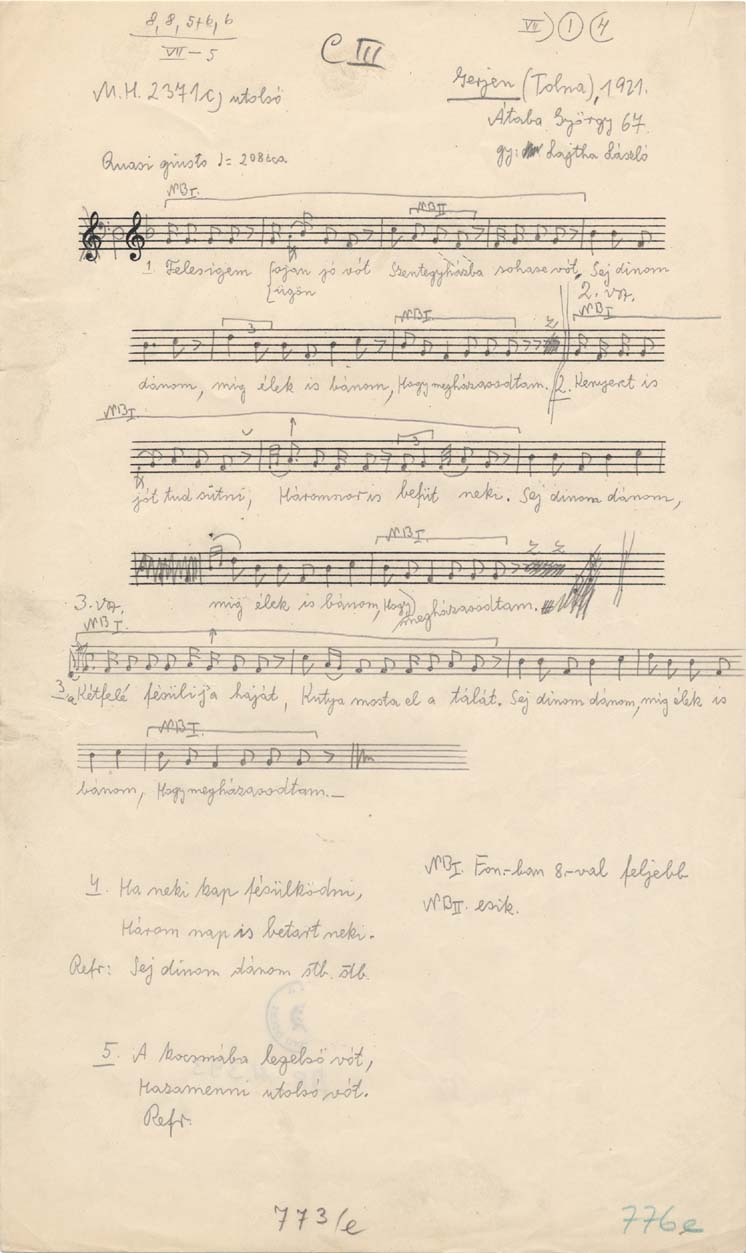 8, 8, 5+6, 6
VII — 5
C III
VII) 1 4
M.H. 2371c) utolsó
Gerjen (Tolna), 1921.
Átaba György 67.
gy: Lajtha László
Quasi giusto ♩= 208 ca
NB I.
NB II
1 Felesigem faján jó vót Szentegyházba sohase vót, Sej dinom
ügön
2. vsz.
NB I
3
NB I.
dánom, mig élek is bánom, Hogy megházasodtam. 2. Kenyeret is
NB I.
3
jót tud sütni, Háromnor is befüt neki. Sej dinom dánom,
NB I.
mig élek is bánom, Hogy megházasodtam.
3. vsz.
NB I.
3. Kétfelé fésüli ja haját, Kutya mosta el a tálát. Sej dinom dánom, mig élek is
NB I.
bánom, Hogy megházasodtam.—
4. Ha neki kap fésülködni,
Három nap is betart neki.
Refr: Sej dinom dánom stb. stb.
NB I. Fon.-ban 8.-val feljebb
NB II. esik.
5. A kocsmába legelső vót,
Hazamenni utolsó vót.
Refr.
773/e
776e